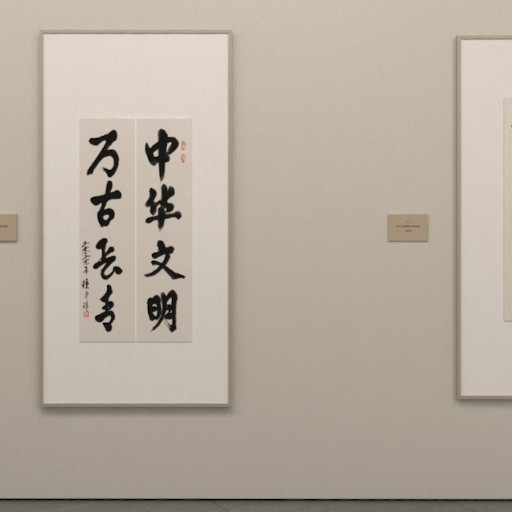 中华文明
万古长青